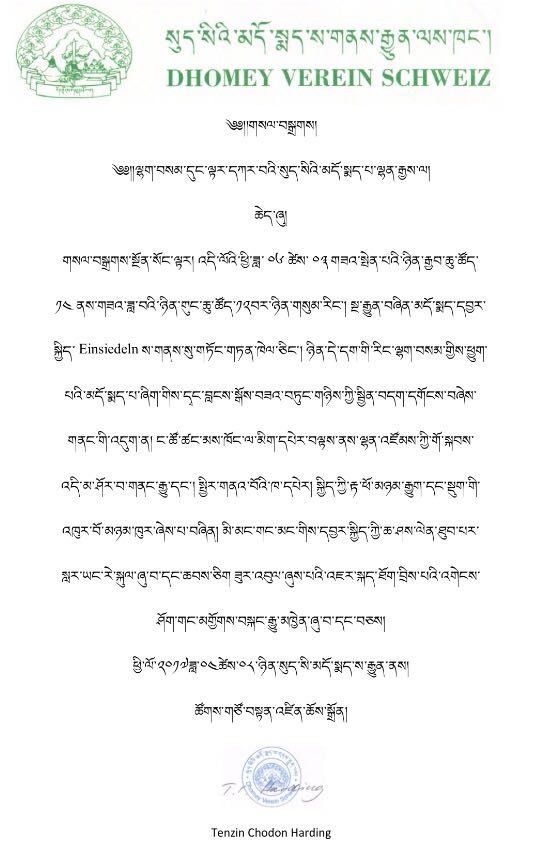 སུད་སིའི་མདོ་སྨད་ས་གནས་རྒྱུན་ལས་ཁང་།
DHOMEY VEREIN SCHWEIZ
༄༅།།གསལ་བསྒྲགས།
༄༅།།ལྷག་བསམ་དུང་ལྟར་དཀར་བའི་སུད་སིའི་མདོ་སྨད་པ་ལྷན་རྒྱས་ལ།
ཆེད་ཞུ།
གསལ་བསྒྲགས་སྔོན་སོང་ལྟར། འདི་ལོའི་ཕྱི་ཟླ་ ༠༦ ཚེས་ ༠༣ གཟའ་སྤེན་པའི་ཉིན་རྒྱབ་ཆུ་ཚོད་
༡༤ ནས་གཟའ་ཟླ་བའི་ཉིན་གུང་ཆུ་ཚོད་༡༢བར་ཉིན་གསུམ་རིང་། སྔ་རྒྱུན་བཞིན་མདོ་སྨད་དབྱར་
སྐྱིད་ Einsiedeln ས་གནས་སུ་གཏོང་གཏན་ཁེལ་ཅིང་། ཉིན་དེ་དག་གི་རིང་ལྷག་བསམ་གྱིས་ཕྱུག་
པའི་མདོ་སྨད་པ་ཞིག་གིས་དྭང་བླངས་སྒོས་བཟའ་བཏུང་གཉིས་ཀྱི་སྦྱིན་བདག་དགོངས་བཞེས་
གནང་གི་འདུག་ན། ང་ཚོ་ཚང་མས་ཁོང་ལ་མིག་དཔེར་བལྟས་ནས་ལྷན་འཛོམས་ཀྱི་གོ་སྐབས་
འདི་མ་ཤོར་བ་གནང་རྒྱུ་དང་། སྤྱིར་གནའ་བོའི་ཁ་དཔེར། སྐྱིད་ཀྱི་རྟ་ཕོ་མཉམ་རྒྱུག་དང་སྡུག་གི་
འཁུར་བོ་མཉམ་ཁུར་ཞེས་པ་བཞིན། མི་མང་གང་མང་གིས་དབྱར་སྐྱིད་ཀྱི་ཆ་ཤས་ལེན་ཐུབ་པར་
སླར་ཡང་རེ་སྐུལ་ཞུ་བ་དང་ཆབས་ཅིག ཟུར་འབུལ་ཞུས་པའི་འཇར་སྐད་ཐོག་བྲིས་པའི་འགེངས་
ཤོག་གང་མགྱོགས་བསྐང་རྒྱུ་མཁྱེན་ཞུ་བ་དང་བཅས།
ཕྱི་ལོ་༢༠༡༧ཟླ་༠༤ཚེས་༠༨་ཉིན་སུད་སི་མདོ་སྨད་ས་རྒྱུན་ནས།
ཚོགས་གཙོ་བསྟན་འཛིན་ཆོས་སྒྲོན།
Tenzin Chodon Harding